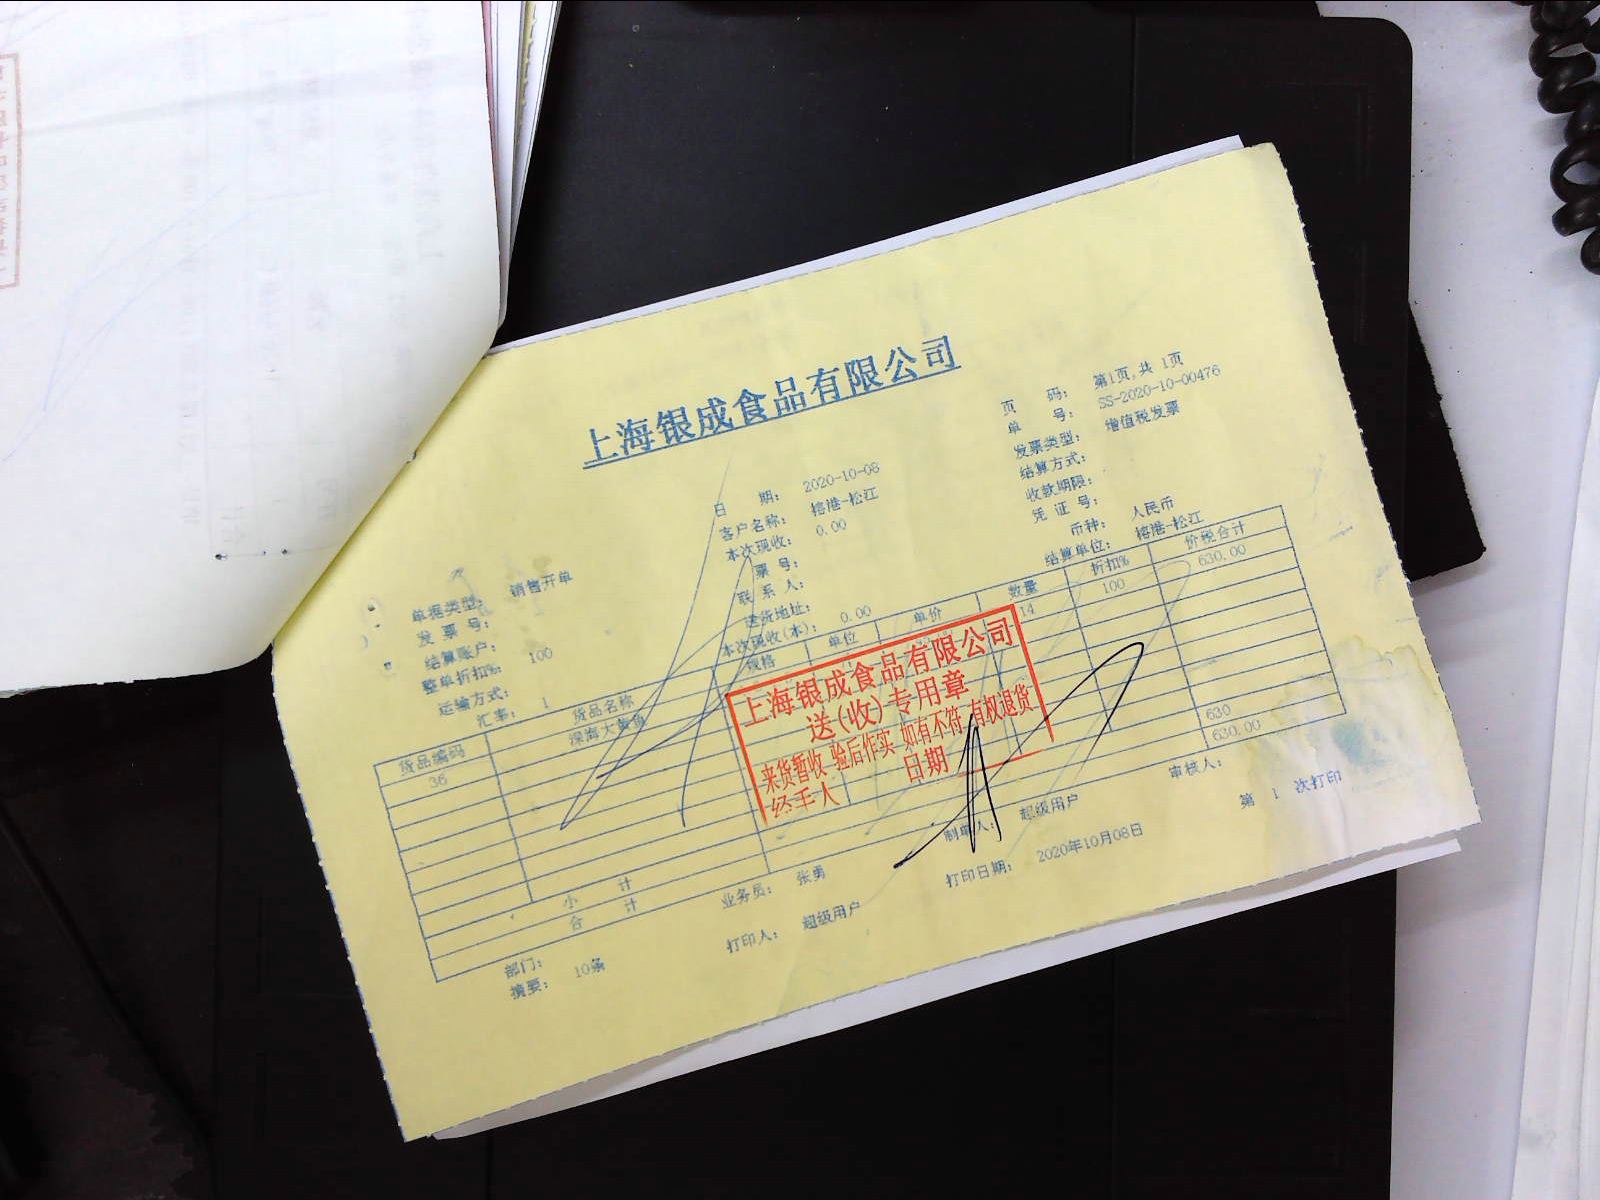 上海银成食品有限公司
页 码： 第1页,共 1页
单 号： SS-2020-10-00476
发票类型： 增值税发票
结算方式：
收款期限：
凭 证 号：
币种： 人民币
结算单位： 榕港-松江
日 期： 2020-10-08
客户名称： 榕港-松江
本次现收： 0.00
票 号：
联 系 人：
送货地址：
本次现收(本)： 0.00
单据类型： 销售开单
发 票 号：
结算账户：
整单折扣%： 100
运输方式：
汇率： 1
货品编码 货品名称 规格 单位 单价 数量 折扣% 价税合计
36 深海大黄鱼 14 100 630.00
小 计 630
合 计 630.00
上海银成食品有限公司
送(收)专用章
来货暂收 验后作实 如有不符 有权退货
经手人 日期
部门： 业务员： 张勇 制单人： 超级用户 审核人：
摘要： 10条 打印人： 超级用户 打印日期： 2020年10月08日 第 1 次打印